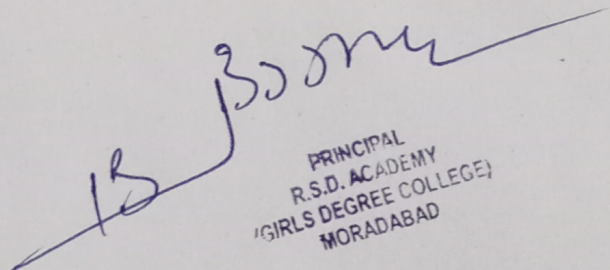 PRINCIPAL
R.S.D. ACADEMY
(GIRLS DEGREE COLLEGE)
MORADABAD